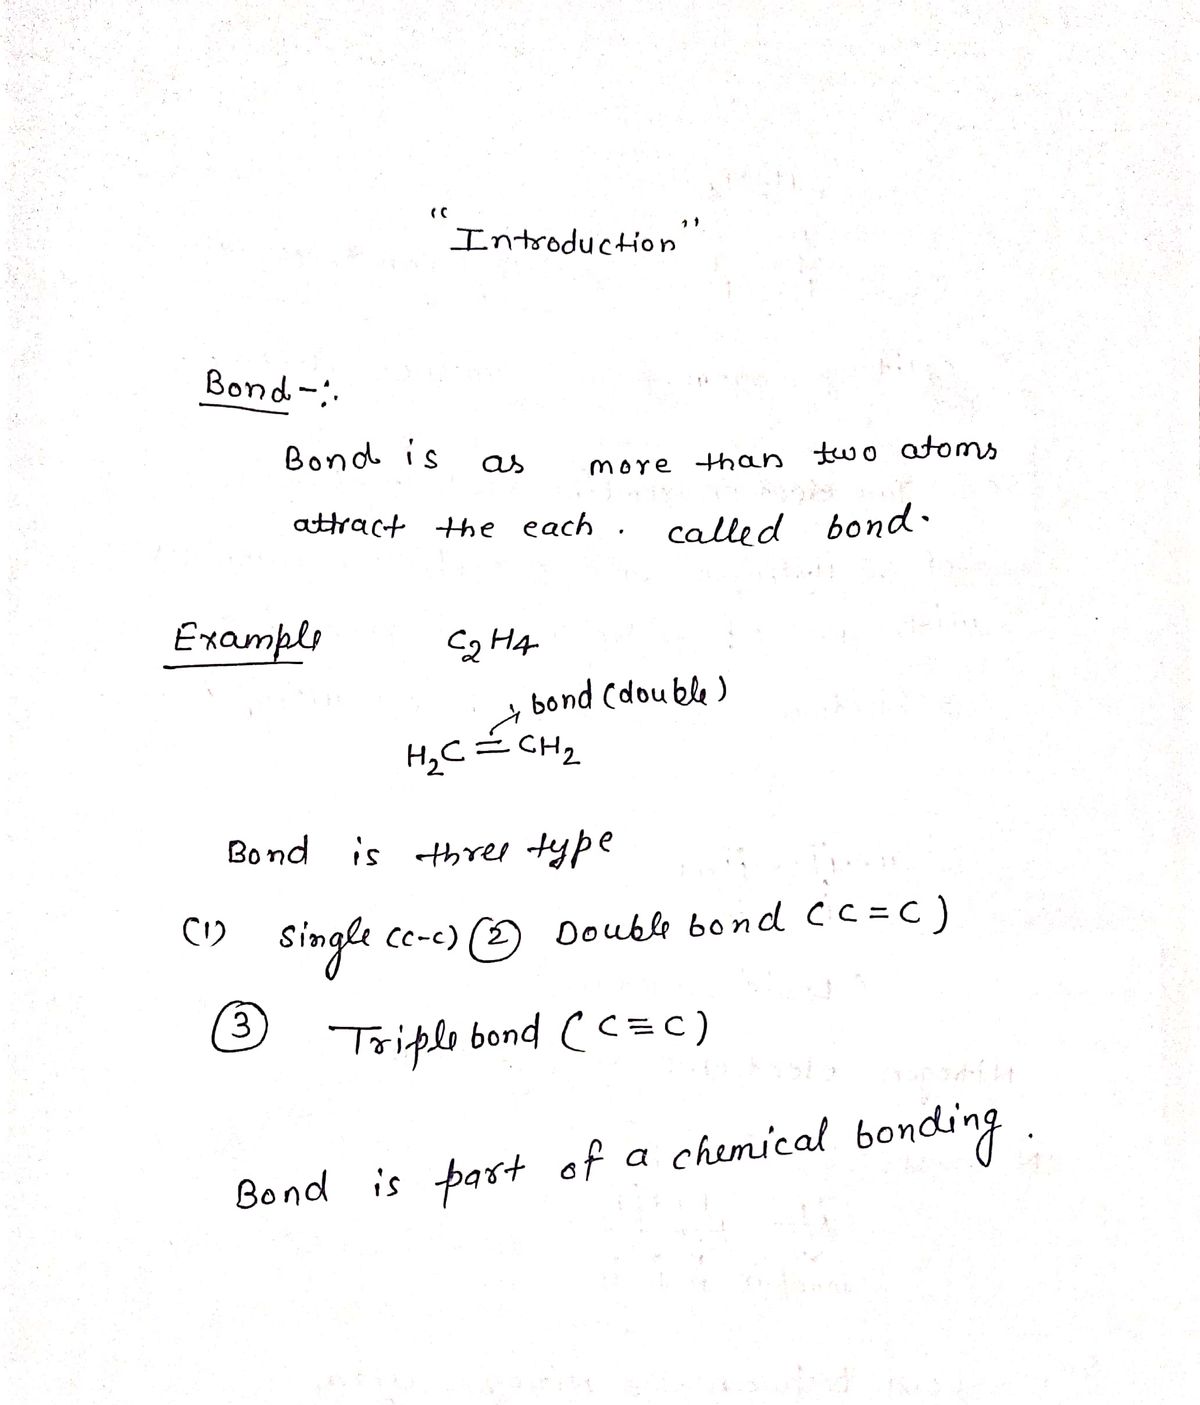 "Introduction"
Bond -:.
Bond is as more than two atoms
attract the each . called bond.
Example C2H4
bond (double)
H2C = CH2
Bond is three type
(1) Single (C-C) (2) Double bond (C=C)
(3) Triple bond (C≡C)
Bond is part of a chemical bonding.